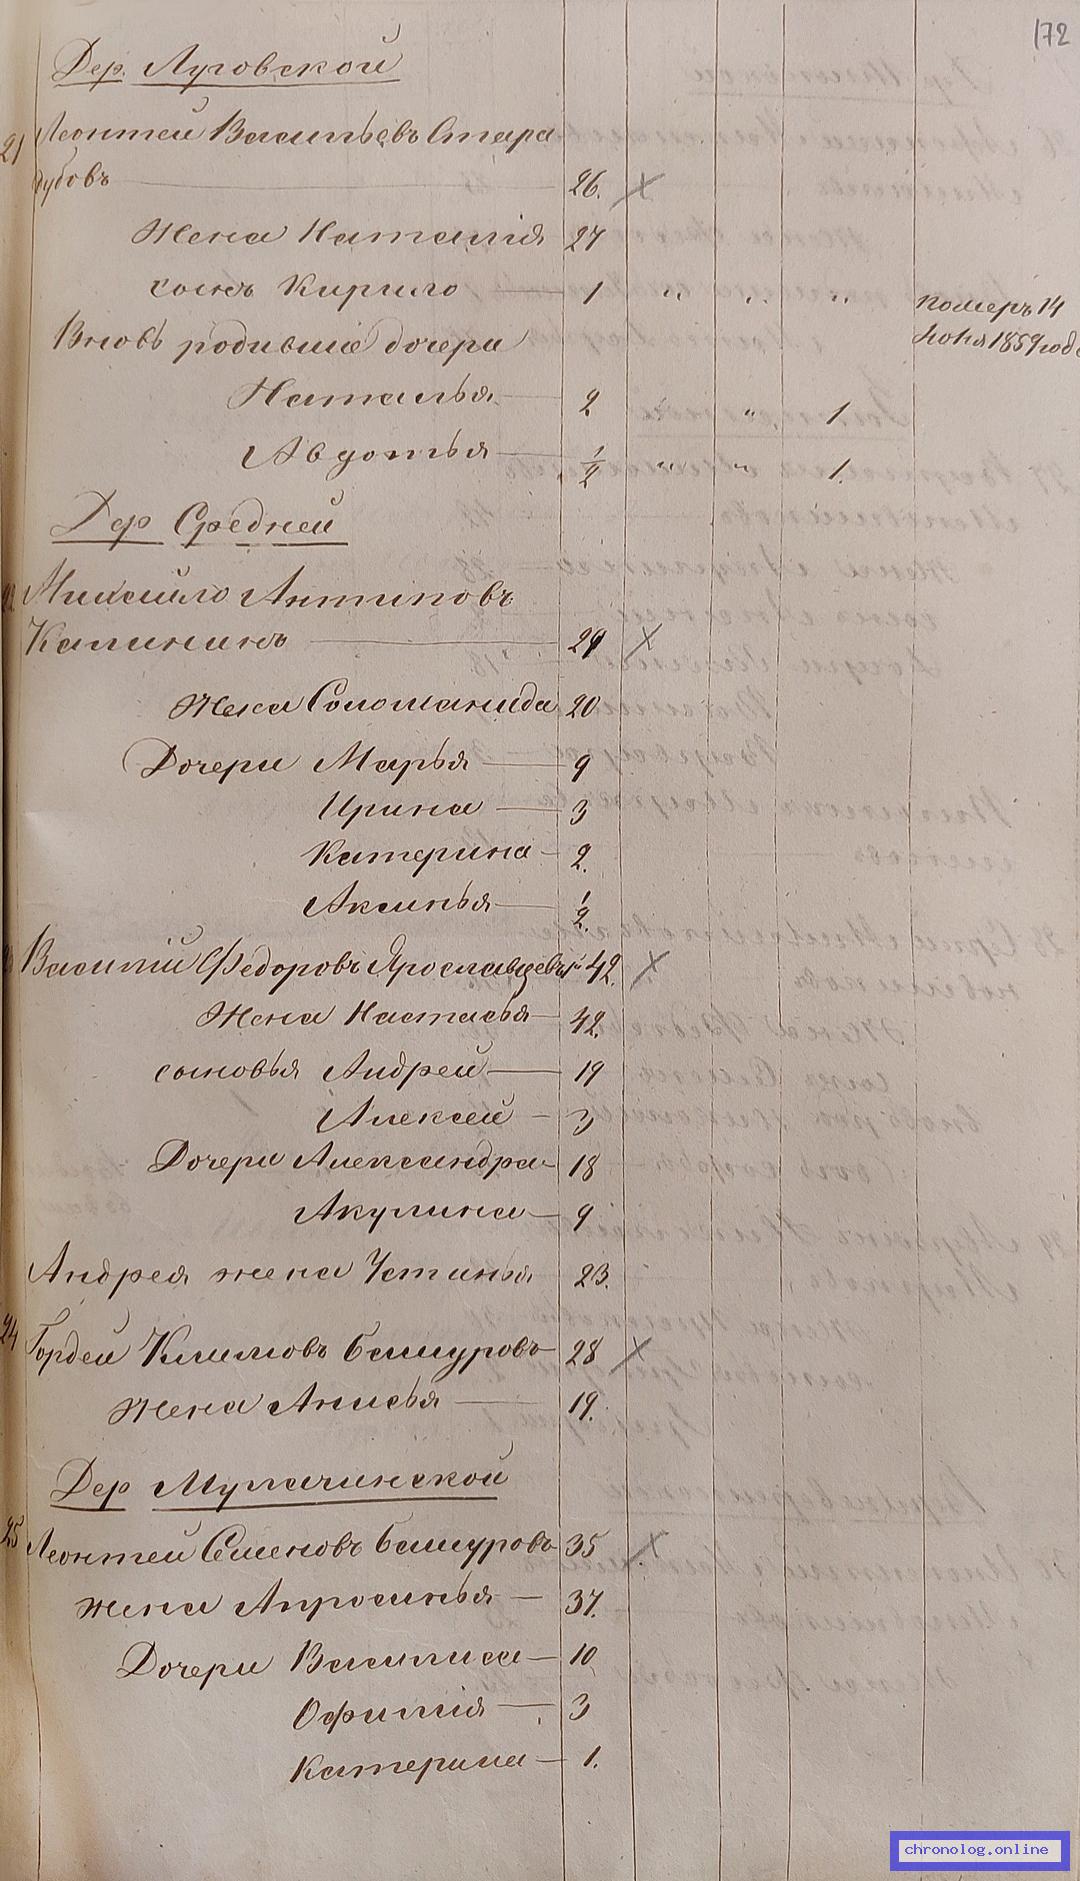 172
Дер. Луговской
21 Леонтей Васильевъ Стара
дубовъ 26.
Жена Наталія 27
сынъ Кирило 1 " " " померъ 14
Іюня 1859 года
Вновь родившіе дочери
Наталья 2 " " 1.
Авдотья 1/2 " " 1.
Дер Средней
Михайло Антиповъ
Калининъ 29
Жена Соломанида 20
Дочери Марья 9
Ирина 3
Катерина 2.
Аксинья 1/2.
Василій Федоровъ Ярославцевъ 42.
Жена Настасья 42.
сыновья Андрей 19
Алексей 3
Дочери Александра 18
Акулина 9
Андрея жена Устинья 23.
24 Гордей Климовъ Башуровъ 28
Жена Анисья 19.
Дер Мулачинской
25 Леонтей Семеновъ Башуровъ 35
жена Апросинья 37.
Дочери Василиса 10
Офимія 3
Катерина 1.
chronolog.online